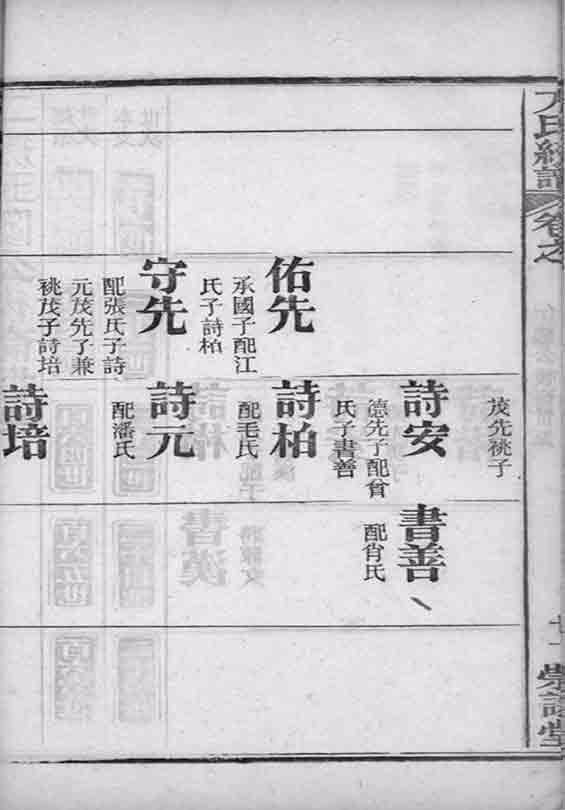 氏
譜
卷之
堂
佑先
承國子配江
氏子詩柏
守先
配張氏子詩
元茂先子兼
祧茂子詩培
茂先祧子
詩安
德先子配曾
氏子書善
詩柏
配毛氏
詩元
配潘氏
詩培
書善
配肖氏